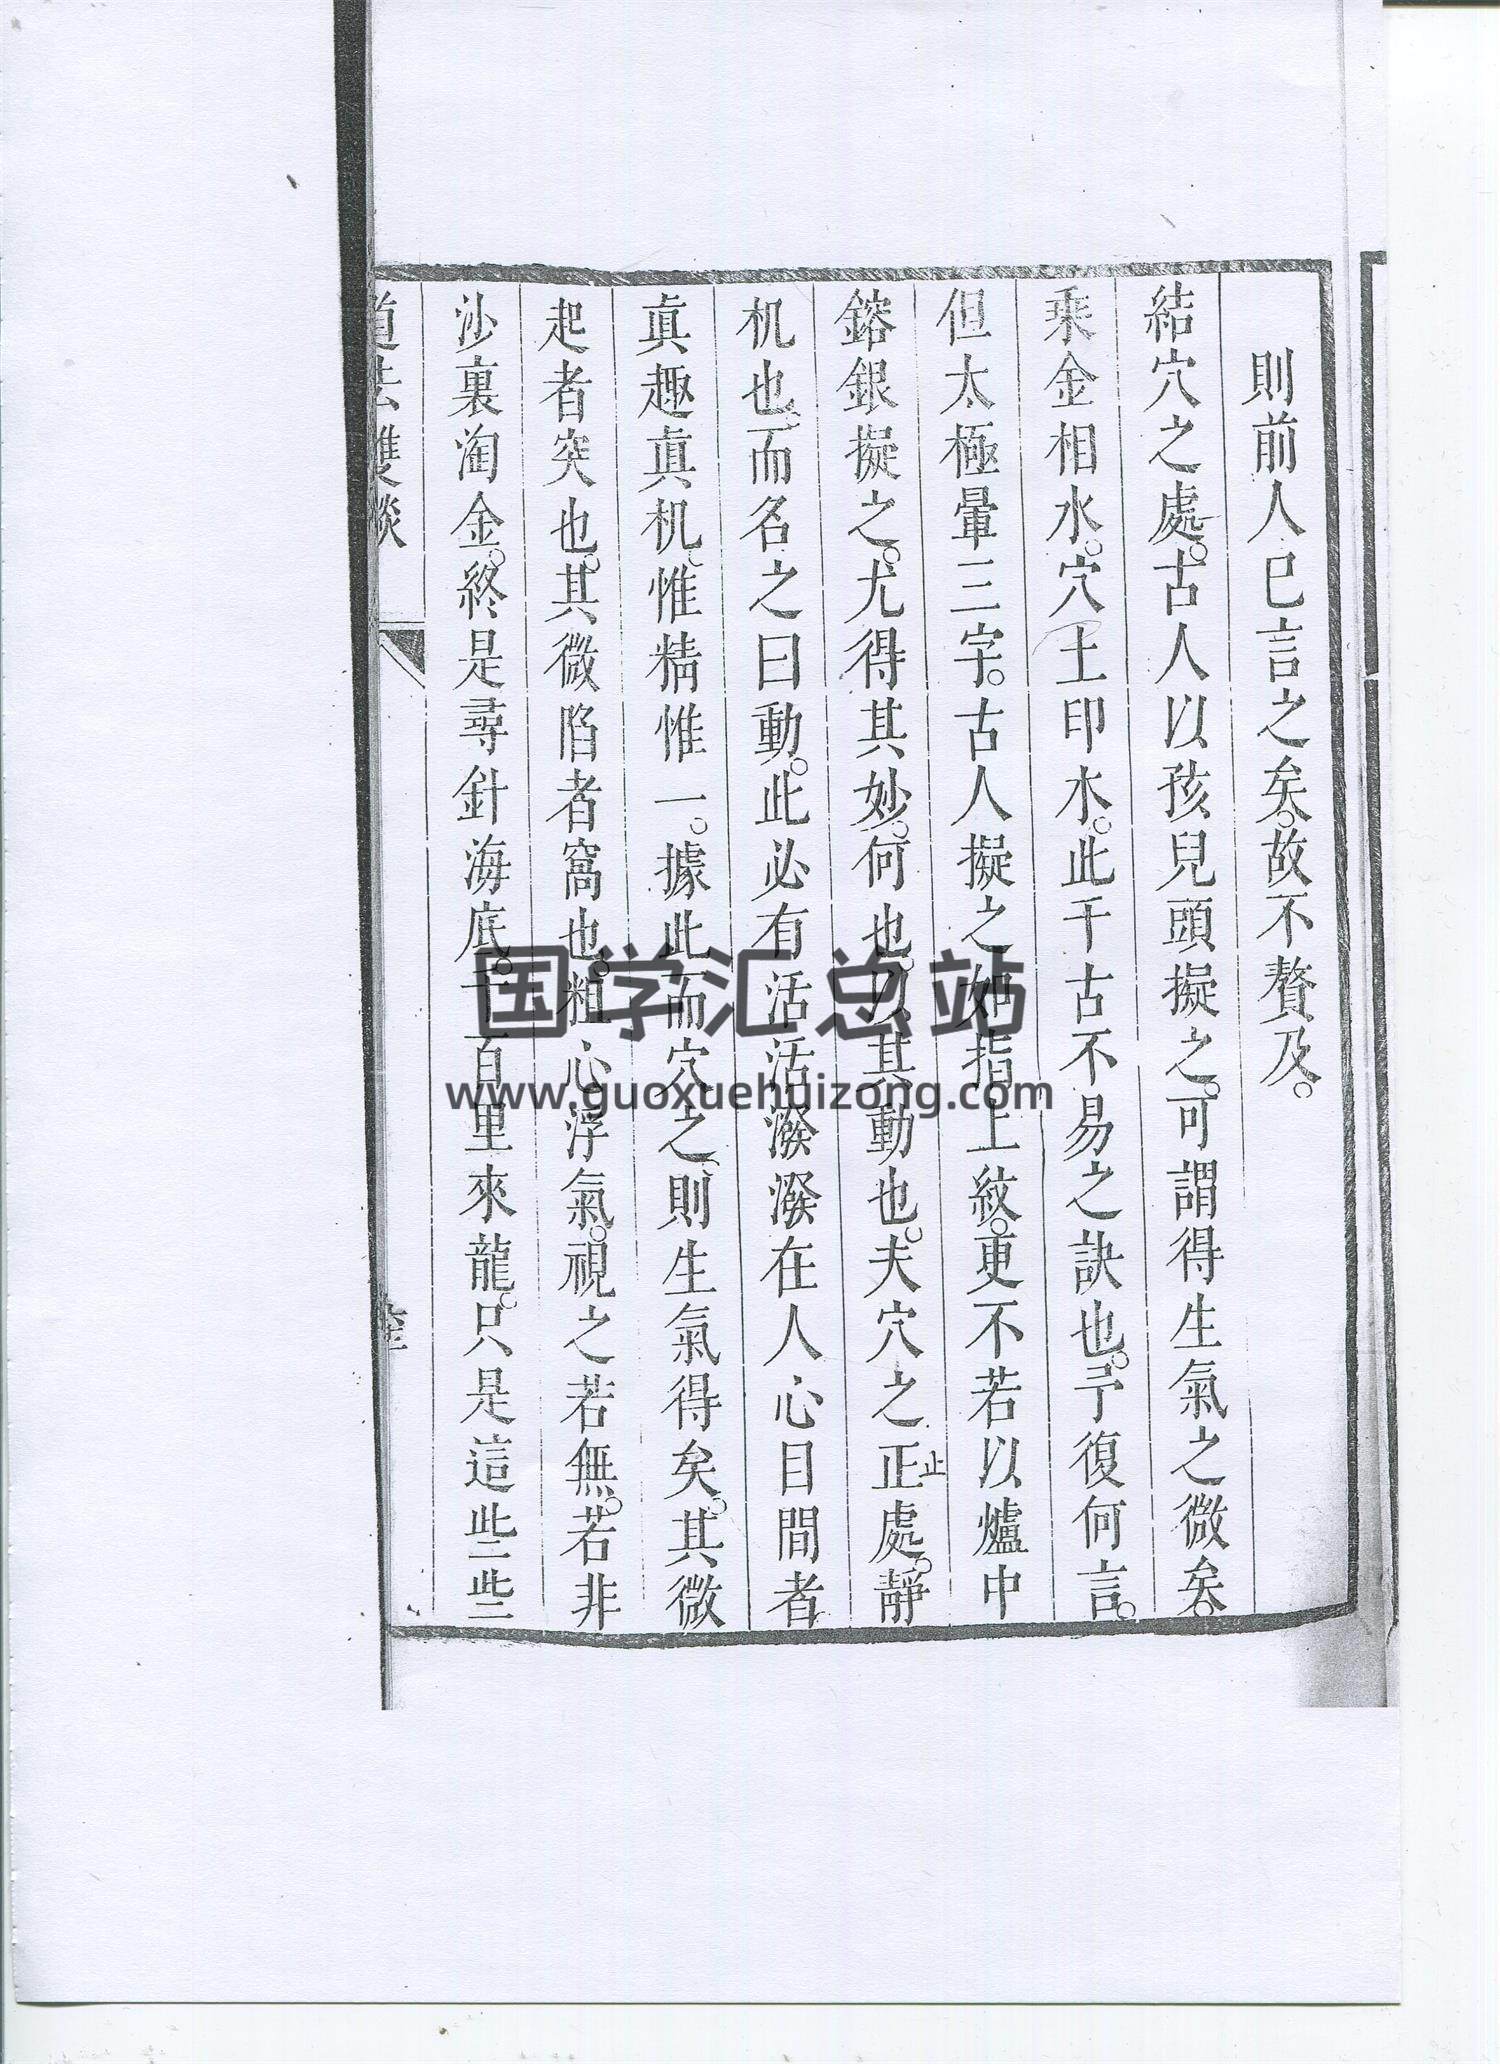 則前人已言之矣。故不贅及。
結穴之處。古人以孩兒頭擬之。可謂得生氣之微矣。
乘金相水。穴土印木。此千古不易之訣也。予復何言。
但太極暈三字。古人擬之如指上紋。更不若以爐中
鎔銀擬之。尤得其妙。何也。以其動也。夫穴之正處。靜
止
机也。而名之曰動。此必有活活潑潑在人心目間者
眞趣眞机。惟精惟一。據此而穴之。則生氣得矣。其微
起者突也。其微陷者窩也。粗心浮氣。視之若無。若非
沙裏淘金。終是尋針海底。千百里來龍。只是這些些
道法雙談
国学汇总站
www.guoxuehuizong.com